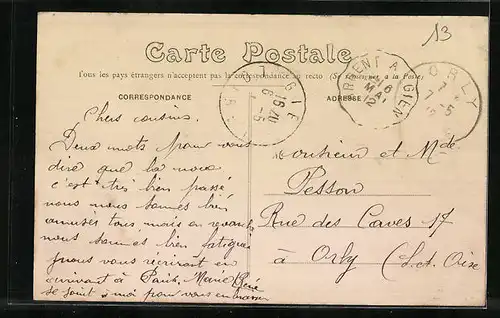 13
Carte Postale
Tous les pays étrangers n'acceptent pas la correspondance au recto (Se renseigner à la Poste)
CORRESPONDANCE
ADRESSE
GIEN
16
6 -5
ARGENT A GIEN
6
MAI
12
ORLY
7
7 -5
Chers cousins.
Deux mots pour vous
dire que la noce
c'est très bien passé
nous nous sommes bien
amusés tous mais en revanche
nous sommes bien fatigués
nous vous écrirons en
arrivant à Paris. Marie René
se joint à moi pour vous embrasser
Monsieur et Mde
Pesson
Rue des Caves 17
à Orly (S. et Oise